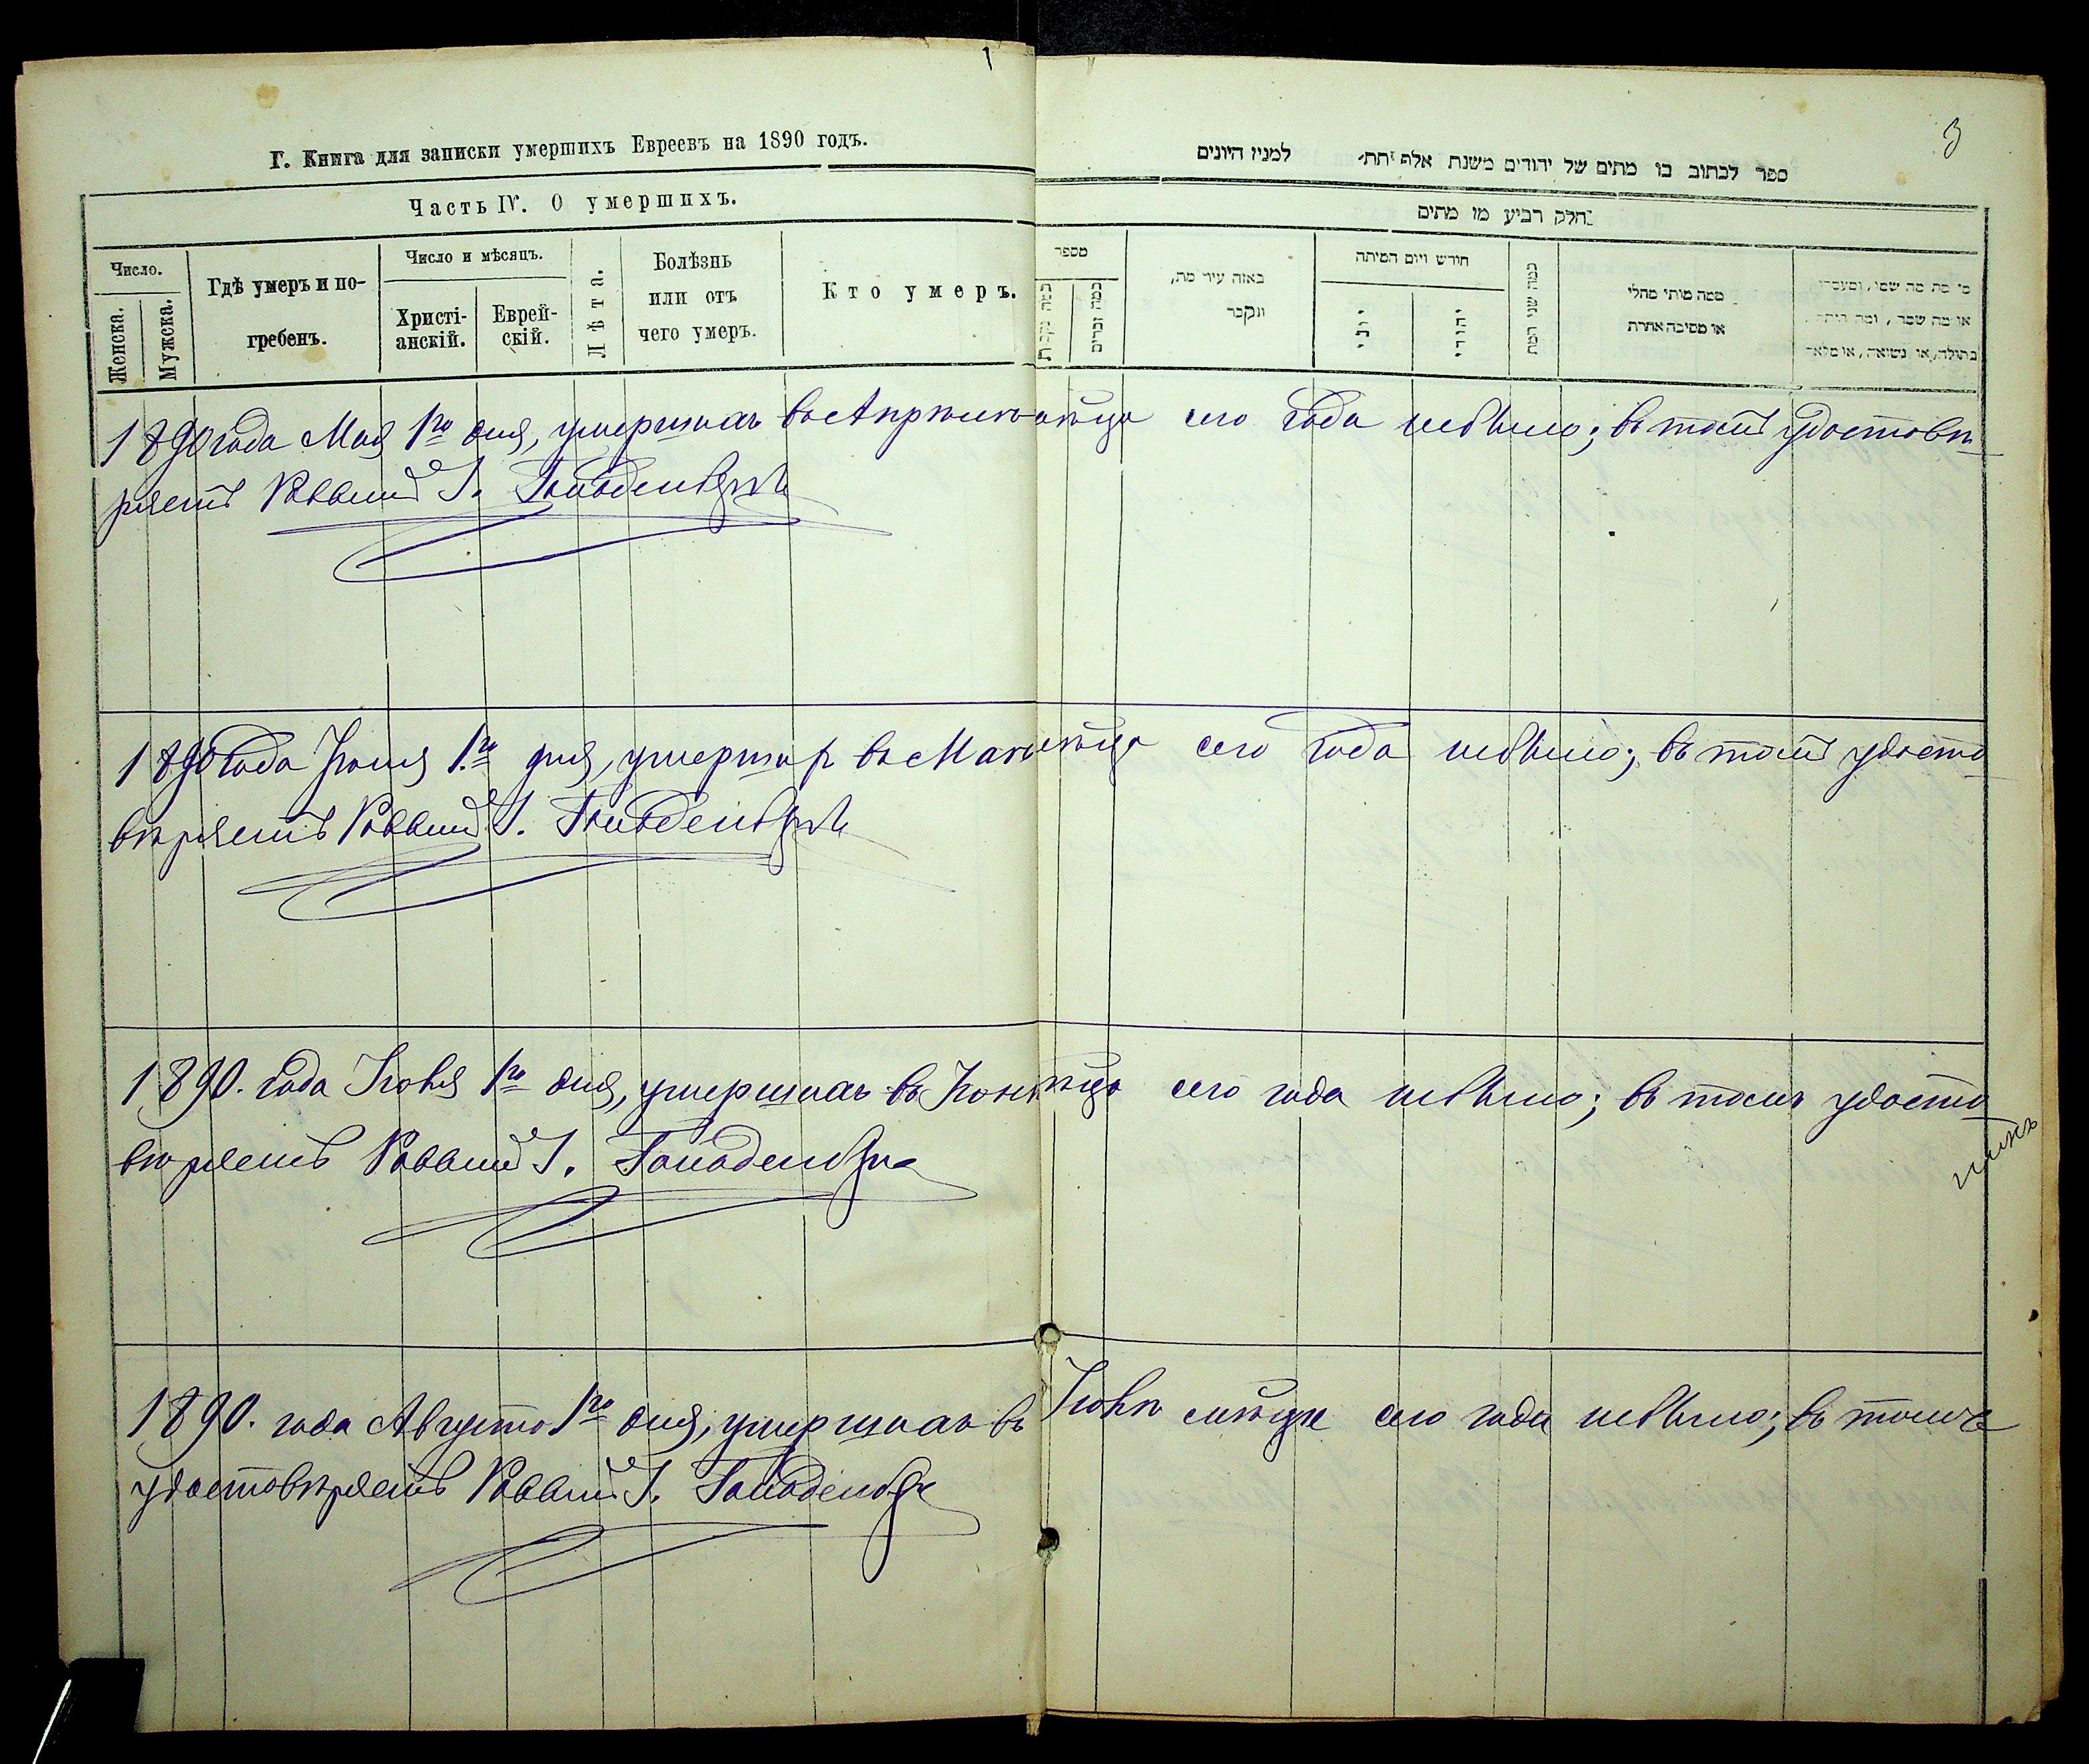 1
3
Г. Книга для записки умершихъ Евреевъ на 1890 годъ.
ספר לכתוב בו מתים של יהודים משנת אלף תת למנין היונים
Часть IV. О умершихъ.
חלק רביע מן מתים
Число.
Женска.
Мужска.
Гдѣ умеръ и по-
гребенъ.
Число и мѣсяцъ.
Христі-
анскій.
Еврей-
скій.
Лѣта.
Болѣзнь
или отъ
чего умеръ.
Кто умеръ.
מספר
כמה נקבות
כמה זכרים
באזה עיר מת,
ונקבר
חודש ויום המיתה
יוני
יהודי
כמה שני המת
ממה מותי מחלי
או מסיבה אחרת
מי מת מה שמו,
או מה שמה, ומה היתה,
בתולה, או נשואה, או
1890 года Мая 1го дня, умершихъ въ Апрѣлѣ мѣцѣ сего года небыло; въ томъ удостовѣ-
ряетъ Раввинъ
1890 года Іюня 1го дня, умершихъ въ Маѣ мѣцѣ сего года небыло; въ томъ удосто
вѣряетъ Раввинъ
1890. года Іюля 1го дня, умершихъ въ Іюнѣ мѣцѣ сего года небыло; въ томъ удосто
вѣряетъ Раввинъ
1890. года Августа 1го дня, умершихъ въ Іюлѣ мѣцѣ сего года небыло; въ томъ
удостовѣряетъ Раввинъ